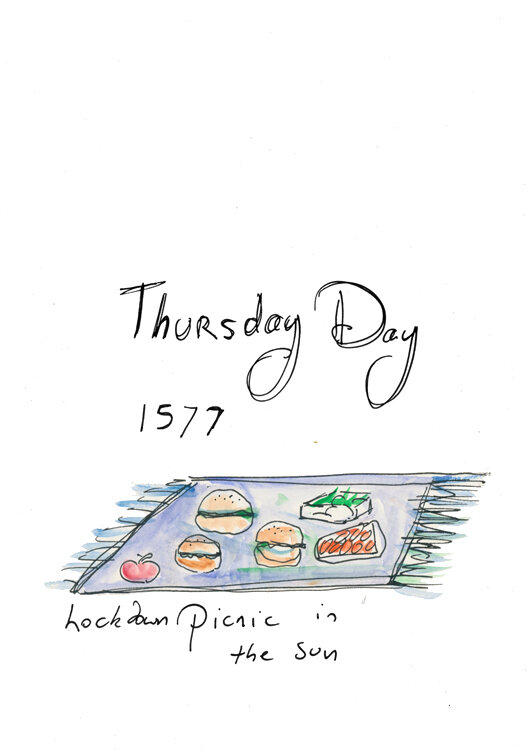 Thursday Day
1577
Lockdown Picnic in
the Sun